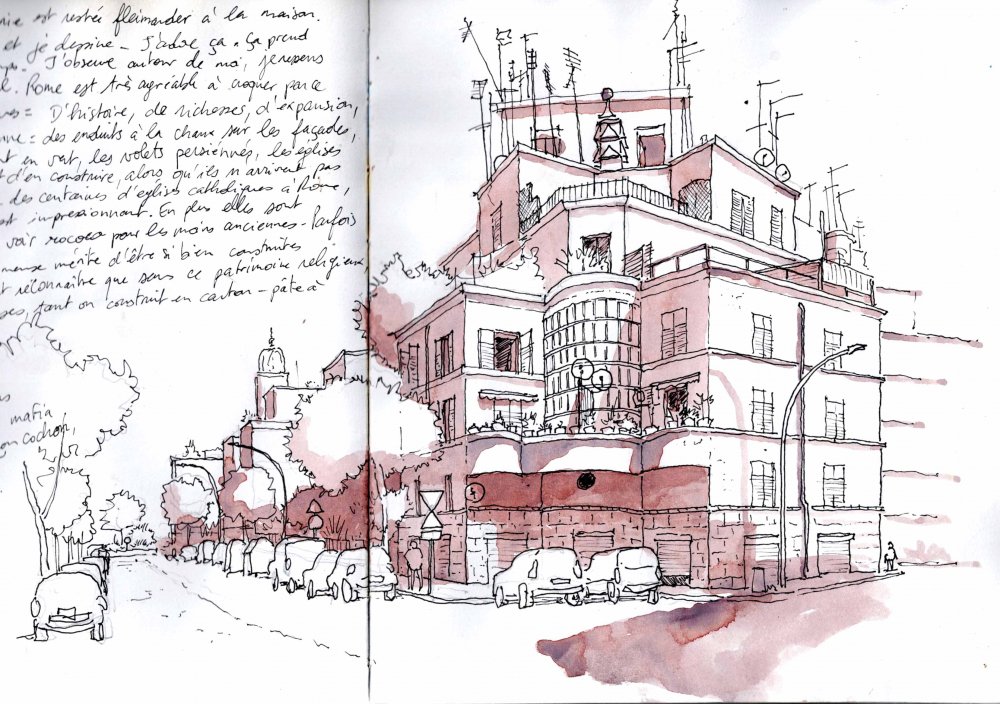 est restée fleimander à la maison.
et je dessine - J'adore ça. Ça prend
J'observe autour de moi, je repens
Rome est très agréable à croquer parce
D'histoire, de richesses, d'expansion,
des enduits à la chaux sur les façades,
en vert, les volets persiennés, les églises
d'en construire, alors qu'ils n'arrivent pas
des centaines d'églises catholiques à Rome,
est impressionnant. En plus elles sont
voir rococo pour les moins anciennes - Parfois
mérite d'être si bien construites
reconnaître que sans ce patrimoine religieux,
tant on construit en carton-pâte à
mafia
cochon,